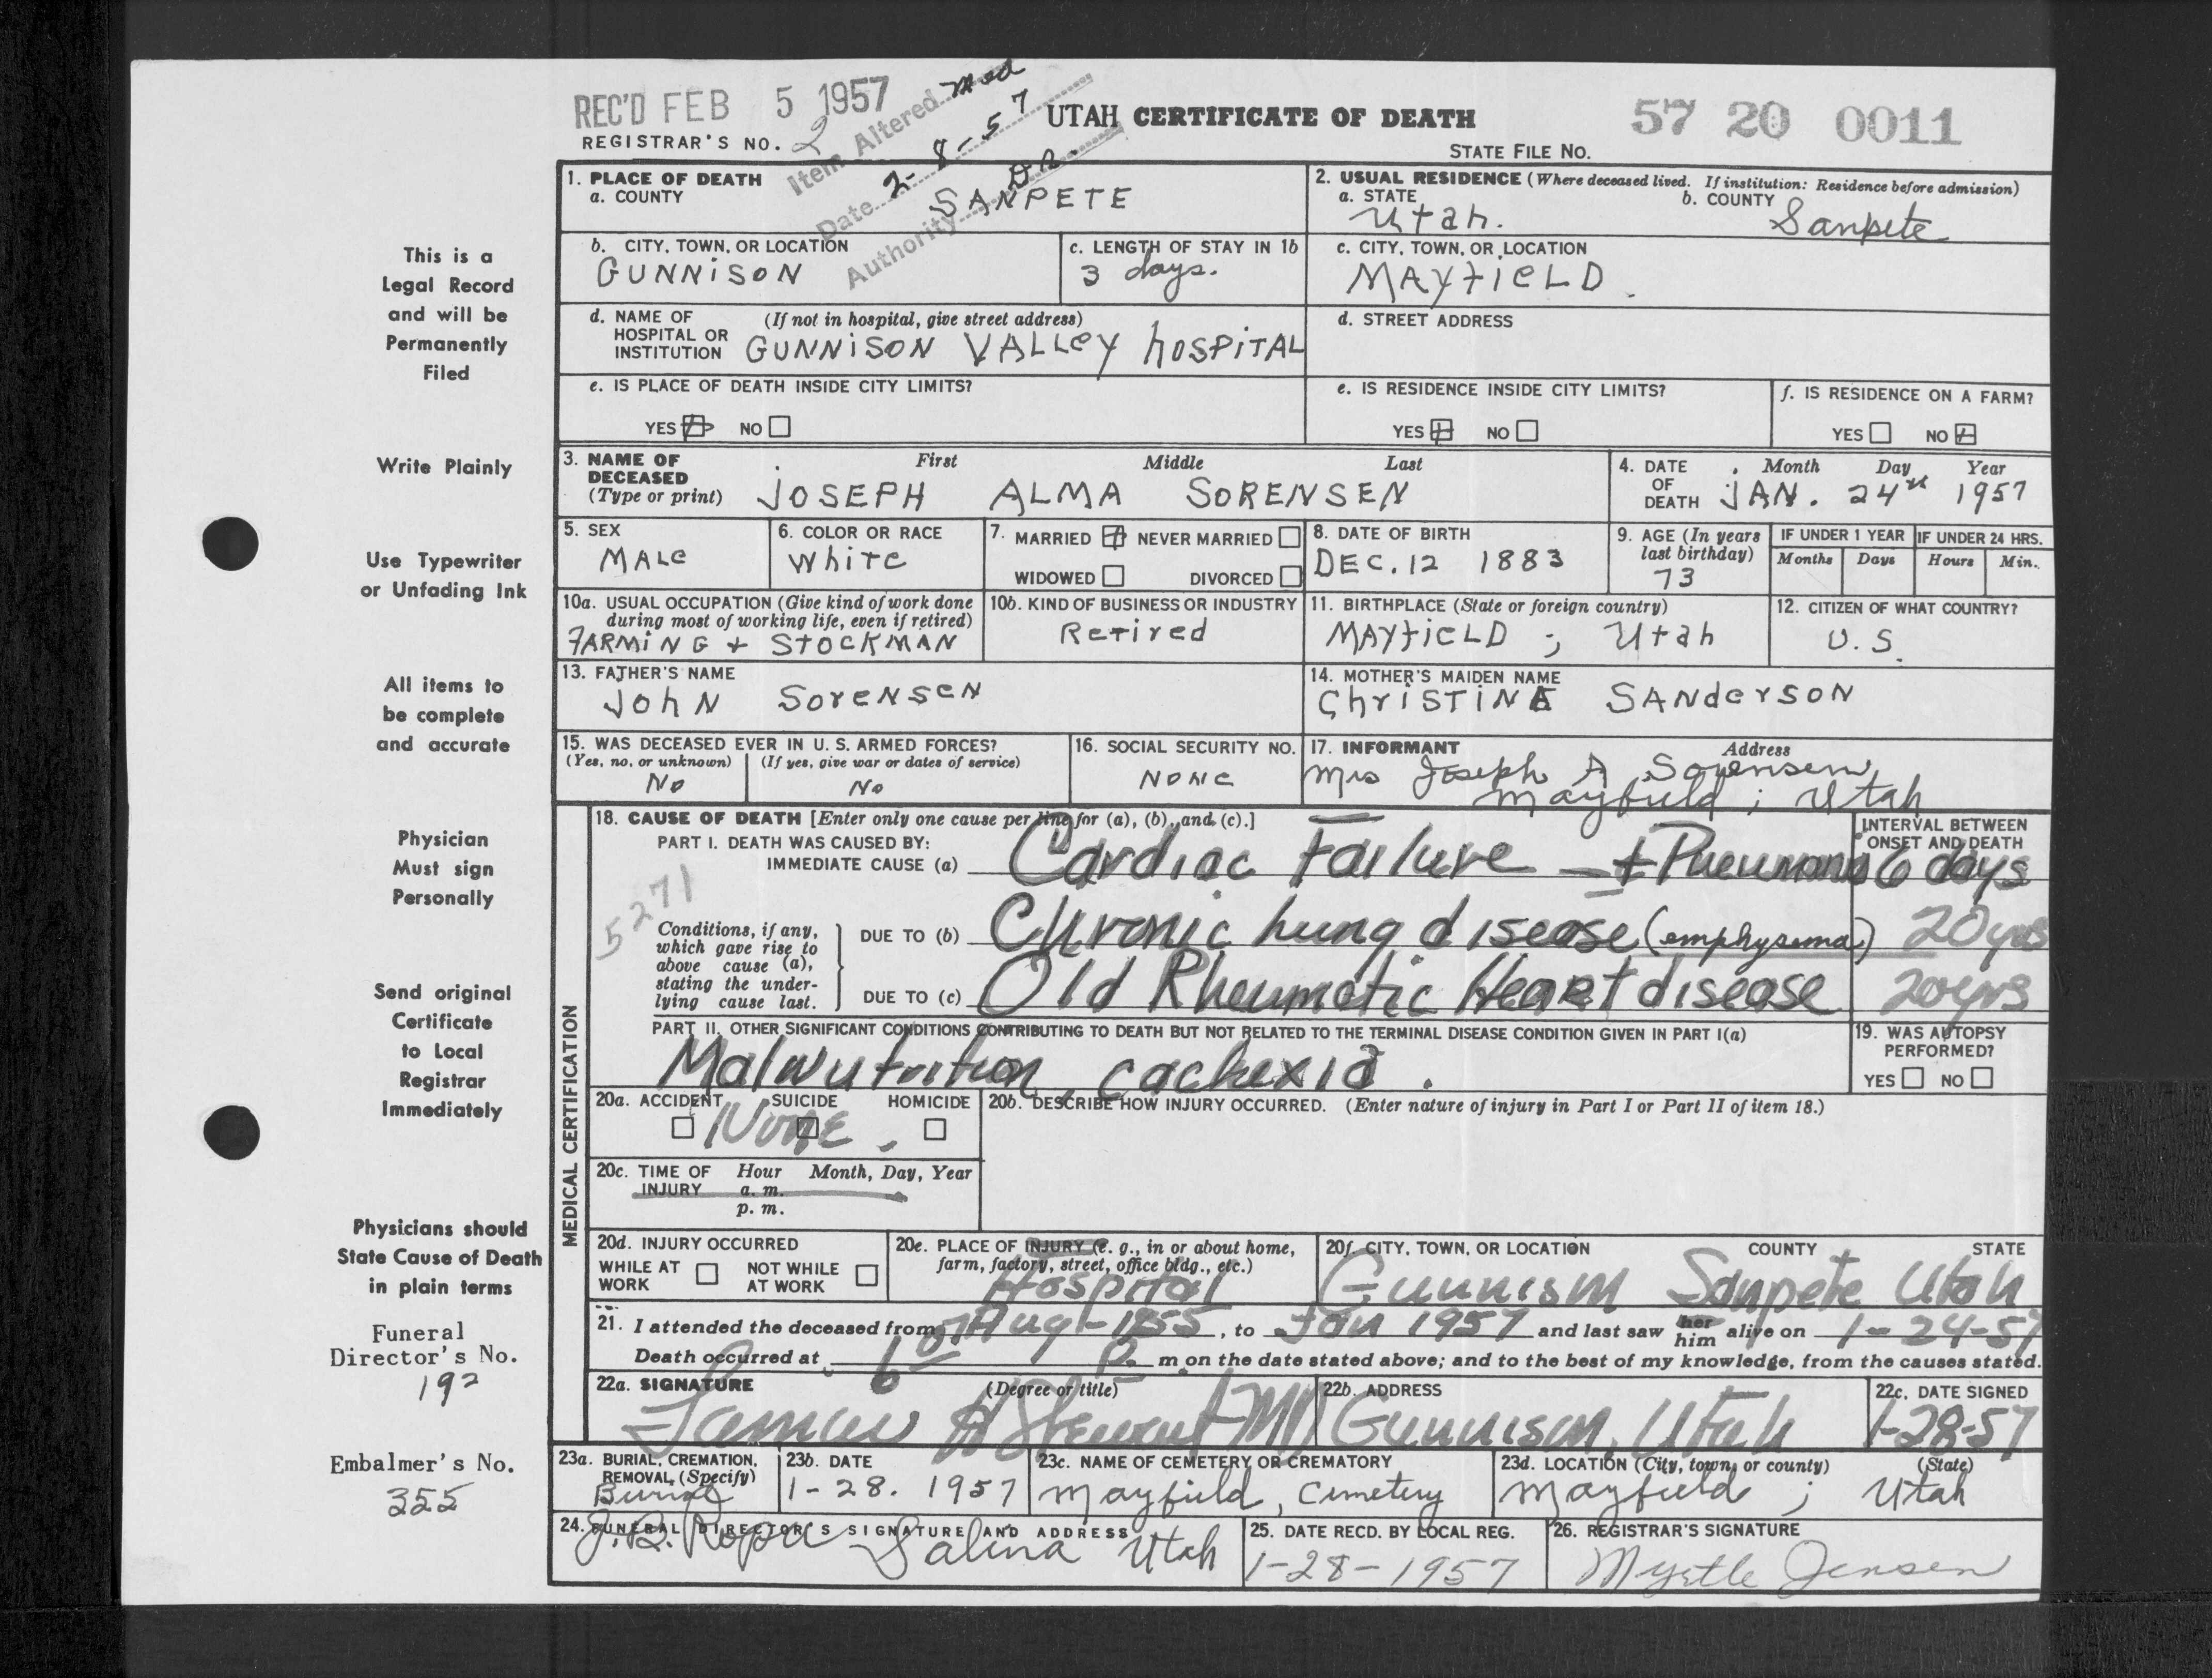 REC'D FEB 5 1957
REGISTRAR'S NO. 2
Item Altered Med
Date 2-8-57
Authority Dr.
UTAH CERTIFICATE OF DEATH
57 20 0011
STATE FILE NO.
1. PLACE OF DEATH
a. COUNTY
SANPETE
2. USUAL RESIDENCE (Where deceased lived. If institution: Residence before admission)
a. STATE
Utah.
b. COUNTY
Sanpete
b. CITY, TOWN, OR LOCATION
GUNNISON
c. LENGTH OF STAY IN 1b
3 days.
c. CITY, TOWN, OR LOCATION
MAYFIELD
d. NAME OF HOSPITAL OR INSTITUTION (If not in hospital, give street address)
GUNNISON VALLEY HOSPITAL
d. STREET ADDRESS
e. IS PLACE OF DEATH INSIDE CITY LIMITS?
YES NO
e. IS RESIDENCE INSIDE CITY LIMITS?
YES NO
f. IS RESIDENCE ON A FARM?
YES NO
3. NAME OF DECEASED (Type or print)
First Middle Last
JOSEPH ALMA SORENSEN
4. DATE OF DEATH
Month Day Year
JAN. 24th 1957
5. SEX
MALE
6. COLOR OR RACE
White
7. MARRIED NEVER MARRIED
WIDOWED DIVORCED
8. DATE OF BIRTH
DEC. 12 1883
9. AGE (In years last birthday)
73
IF UNDER 1 YEAR
Months Days
IF UNDER 24 HRS.
Hours Min.
10a. USUAL OCCUPATION (Give kind of work done during most of working life, even if retired)
FARMING + STOCKMAN
10b. KIND OF BUSINESS OR INDUSTRY
Retired
11. BIRTHPLACE (State or foreign country)
MAYFIELD ; Utah
12. CITIZEN OF WHAT COUNTRY?
U.S.
13. FATHER'S NAME
John Sorensen
14. MOTHER'S MAIDEN NAME
Christina Sanderson
15. WAS DECEASED EVER IN U. S. ARMED FORCES?
(Yes, no, or unknown) (If yes, give war or dates of service)
No No
16. SOCIAL SECURITY NO.
None
17. INFORMANT Address
Mrs Joseph A Sorensen
Mayfield ; Utah
MEDICAL CERTIFICATION
18. CAUSE OF DEATH [Enter only one cause per line for (a), (b), and (c).]
PART I. DEATH WAS CAUSED BY:
IMMEDIATE CAUSE (a) Cardiac Failure - + Pneumonia
INTERVAL BETWEEN ONSET AND DEATH
6 days
5271
Conditions, if any, which gave rise to above cause (a), stating the underlying cause last.
DUE TO (b) Chronic lung disease (emphysema) 20 yrs
DUE TO (c) Old Rheumatic Heart disease 20 yrs
PART II. OTHER SIGNIFICANT CONDITIONS CONTRIBUTING TO DEATH BUT NOT RELATED TO THE TERMINAL DISEASE CONDITION GIVEN IN PART I(a)
Malnutrition, cachexia.
19. WAS AUTOPSY PERFORMED?
YES NO
20a. ACCIDENT SUICIDE HOMICIDE
None.
20b. DESCRIBE HOW INJURY OCCURRED. (Enter nature of injury in Part I or Part II of item 18.)
20c. TIME OF INJURY Hour Month, Day, Year
a. m.
p. m.
20d. INJURY OCCURRED
WHILE AT WORK NOT WHILE AT WORK
20e. PLACE OF INJURY (e. g., in or about home, farm, factory, street, office bldg., etc.)
Hospital
20f. CITY, TOWN, OR LOCATION COUNTY STATE
Gunnison Sanpete Utah
21. I attended the deceased from Aug - 1955, to Jan 1957 and last saw her him alive on 1-24-57
Death occurred at 6 p. m on the date stated above; and to the best of my knowledge, from the causes stated.
22a. SIGNATURE (Degree or title)
Lamar H Stewart MD
22b. ADDRESS
Gunnison, Utah
22c. DATE SIGNED
1-28-57
23a. BURIAL, CREMATION, REMOVAL (Specify)
Burial
23b. DATE
1-28. 1957
23c. NAME OF CEMETERY OR CREMATORY
Mayfield, Cemetery
23d. LOCATION (City, town, or county) (State)
Mayfield ; Utah
24. FUNERAL DIRECTOR'S SIGNATURE AND ADDRESS
Salina Utah
25. DATE RECD. BY LOCAL REG.
1-28-1957
26. REGISTRAR'S SIGNATURE
Myrtle Jensen
This is a
Legal Record
and will be
Permanently
Filed
Write Plainly
Use Typewriter
or Unfading Ink
All items to
be complete
and accurate
Physician
Must sign
Personally
Send original
Certificate
to Local
Registrar
Immediately
Physicians should
State Cause of Death
in plain terms
Funeral
Director's No.
192
Embalmer's No.
355